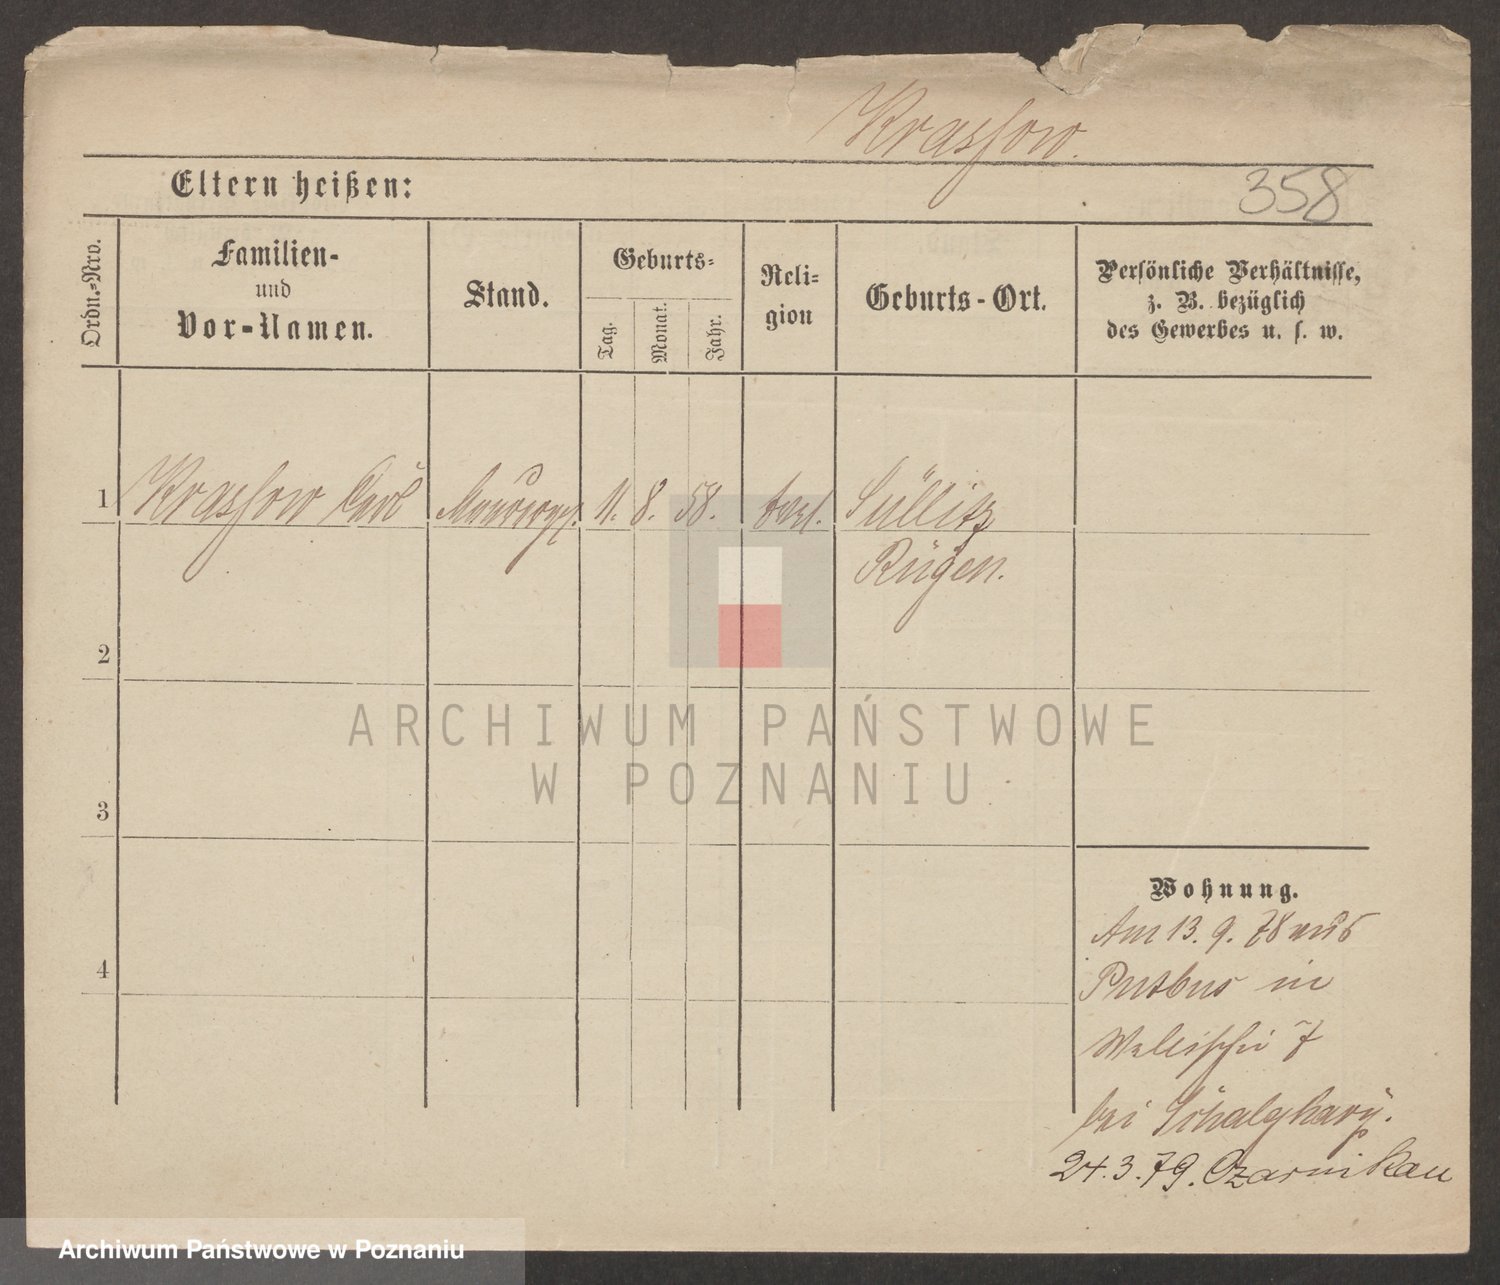 Krassow.
358
Eltern heißen:
Ordn.-Nro.
Familien-
und
Vor-Namen.
Stand.
Geburts-
Tag.
Monat.
Jahr.
Reli-
gion
Geburts-Ort.
Persönliche Verhältnisse,
z. B. bezüglich
des Gewerbes u. s. w.
1
Krassow Carl
Maurergs.
11.
8.
58.
evgl.
Süllitz
Rügen.
2
3
4
Wohnung.
Am 13. 9. 78 aus
Putbus in
Wallischei 7
bei
24.3.79. Czarnikau
ARCHIWUM PAŃSTWOWE
W POZNANIU
Archiwum Państwowe w Poznaniu